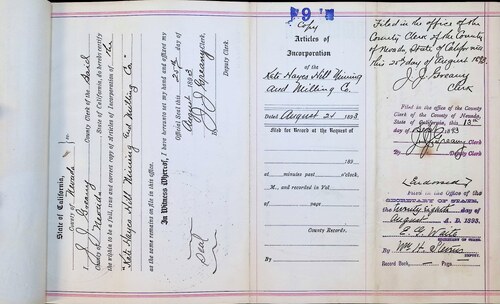 State of California,
County of Nevada } ss
I, J. J. Greany County Clerk of the said
County of Nevada, State of California, do hereby certify
this to be a full, true and correct copy of Articles of Incorporation of the
"Kate Hayes Hill Mining and Milling Co."
as the same remains on file in this office.
In Witness Whereof, I have hereunto set my hand and affixed my
Official Seal this 20th day of
August 1893
J. J. Greany Clerk.
By Deputy Clerk.
Seal
9
Copy
Articles of
Incorporation
of the
Kate Hayes Hill Mining
and Milling Co.
Dated August 21 1893
Filed for Record at the Request of
189
at minutes past o'clock,
M., and recorded in Vol
of page
County Records.
By
Filed in the office of the
County Clerk of the County
of Nevada State of California
this day of August 1893.
J. J. Greany
Clerk
Filed in the office of the
County Clerk of the County of Nevada,
State of California, this 13th
day of Sept 1893
J. J. Greany Clerk
By Deputy Clerk
(Endorsed)
Filed in the Office of the
SECRETARY OF STATE,
the twenty eighth day of
August A. D. 1893.
E. G. Waite
SECRETARY OF STATE.
By Wm. H.
DEPUTY.
Record Book, Page